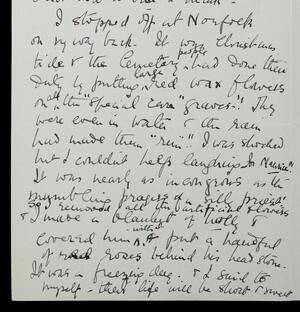 I stopped off at Norfolk
on my way back. It was Christmas
tide & the Cemetery people had Done their
Duty by putting large red wax flowers
on all the "special care graves"! They
were even in water & the rain
had made them "run"! I was shocked
but I couldn't help laughing to Maurice!
It was nearly as incongrous as the
mumbling prayers of a silly priest!
So I removed all the artificial flowers
& I made a blanket of holly &
covered him with it & put a handful
of red roses behind his head stone.
It was a freezing day. & I said to
myself - their life will be short & sweet